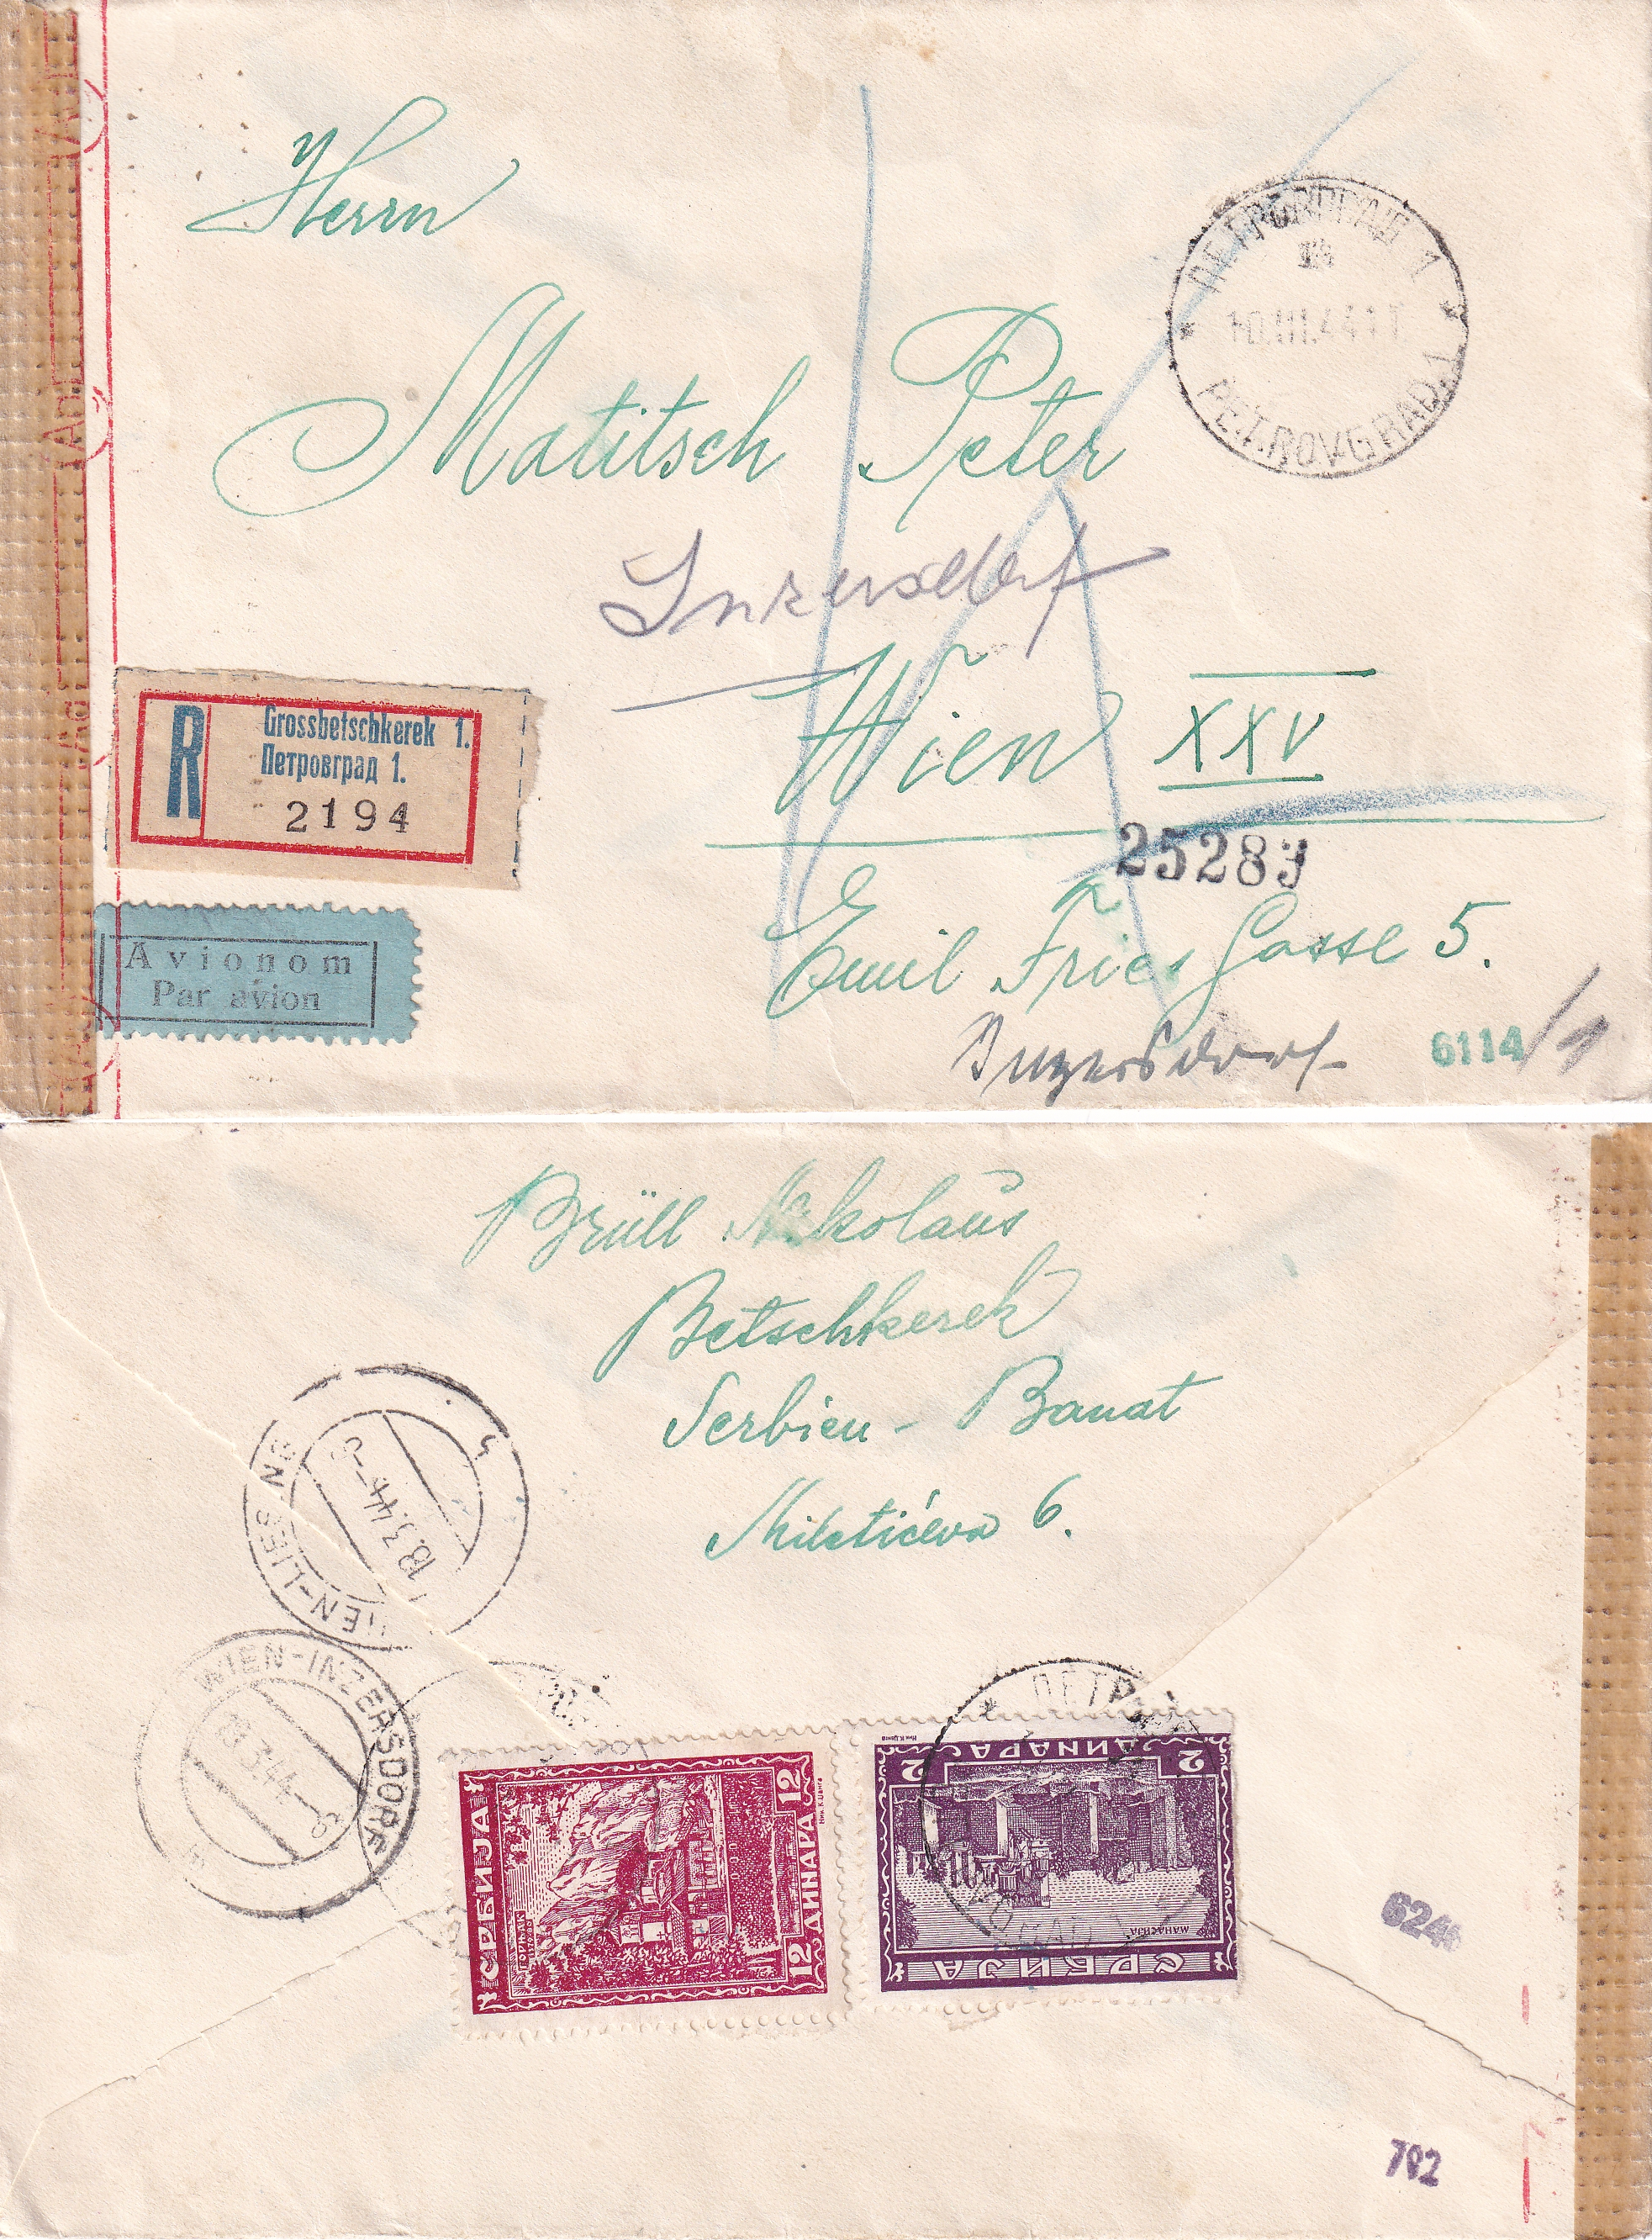 Herrn
Matitsch Peter
Inzersdorf
Wien XXV
25283
Emil Fries Gasse 5.
Inzersdorf
6114/1
ПЕТРОВГРАД 1
10.III.44 11
PETROVGRAD 1
R
Grossbetschkerek 1.
Петровград 1.
2194
Avionom
Par avion
Brüll Nikolaus
Betschkerek
Serbien - Banat
Miletićeva 6.
WIEN-LIESING
18.3.44-9
WIEN-INZERSDORF
3.44-9
СРБИЈА
12 ДИНАРА 12
СРБИЈА
МАНАСИЈА
2 ДИНАРА 2
6246
792